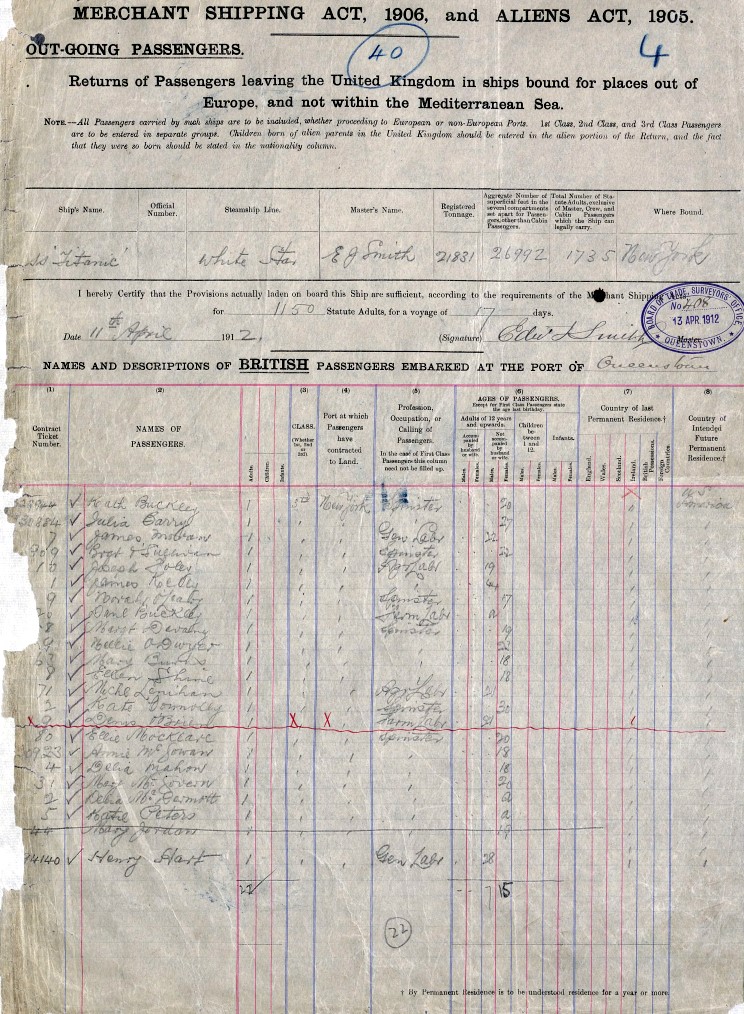 MERCHANT SHIPPING ACT, 1906, and ALIENS ACT, 1905.
OUT-GOING PASSENGERS.
40
4
Returns of Passengers leaving the United Kingdom in ships bound for places out of
Europe, and not within the Mediterranean Sea.
NOTE.—All Passengers carried by such ships are to be included, whether proceeding to European or non-European Ports. 1st Class, 2nd Class, and 3rd Class Passengers
are to be entered in separate groups. Children born of alien parents in the United Kingdom should be entered in the alien portion of the Return, and the fact
that they were so born should be stated in the nationality column.
Ship's Name. Official Number. Steamship Line. Master's Name. Registered Tonnage. Aggregate Number of superficial feet in the several compartments set apart for Passengers, other than Cabin Passengers. Total Number of Statute Adults, exclusive of Master, Crew, and Cabin Passengers which the Ship can legally carry. Where Bound.
ss 'Titanic' White Star E J Smith 21831 26992 1735 New York
I hereby Certify that the Provisions actually laden on board this Ship are sufficient, according to the requirements of the Merchant Shipping
for 1150 Statute Adults, for a voyage of 17 days.
Date 11th April 1912. (Signature) Edw J Smith Master.
BOARD OF TRADE, SURVEYORS' OFFICE
No 408
13 APR 1912
QUEENSTOWN.
NAMES AND DESCRIPTIONS OF BRITISH PASSENGERS EMBARKED AT THE PORT OF Queenstown
(1) (2) (3) (4) (5) (6) (7) (8)
Contract Ticket Number. NAMES OF PASSENGERS. Adults. Children. Infants. CLASS. (Whether 1st, 2nd or 3rd). Port at which Passengers have contracted to Land. Profession, Occupation, or Calling of Passengers. In the case of First Class Passengers this column need not be filled up. AGES OF PASSENGERS. Except for First Class Passengers state the age last birthday. Adults of 12 years and upwards. Accompanied by husband or wife. Not accompanied by husband or wife. Children between 1 and 12. Infants. Males. Females. Males. Females. Males. Females. Males. Females. Country of last Permanent Residence.† England. Wales. Scotland. Ireland. British Possessions. Foreign Countries. Country of Intended Future Permanent Residence.†
✓ Kath Buckley 1 New York Spinster 20 America
✓ Julia Barry 1 27
7 ✓ James 1 Gen Labr 22
✓ 1 Spinster 22
10 ✓ Joseph Foley 1 19
1 ✓ James Kelly 1 44
9 ✓ Norah 1 Spinster 17
✓ Danl Buckley 1 Farm Labr
8 ✓ Margt Devaney 1 Spinster 19
9 ✓ Nellie O'Dwyer 1 22
✓ Mary Burns 1 18
8 ✓ Ellen Shine 1 18
71 ✓ Michl Lenihan 1 Agr Labr 21
2 ✓ Kate Connolly 1 Spinster 30
X Denis O'Brien 1 X X Farm Labr 21
80 ✓ Ellie Mockler 1 Spinster 20
✓ Annie McGowan 1 18
4 ✓ Delia Mahon 1 18
31 ✓ Mary McGovern 1 20
2 ✓ Delia McDermott 1
5 ✓ Katie Peters 1
44 Mary Jordan 1 18
14140 ✓ Henry Hart 1 Gen Labr 28
22 7 15
22
† By Permanent Residence is to be understood residence for a year or more.